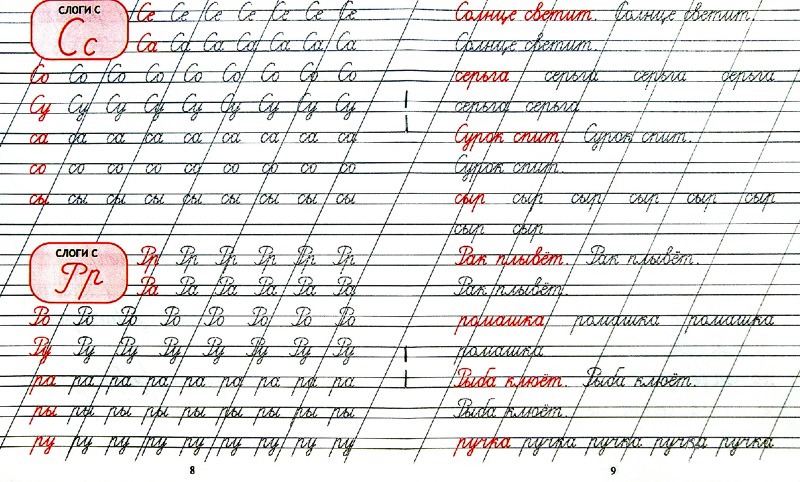 СЛОГИ С
Сс
Се Се Се Се Се Се Се
Са Са Са Са Са Са Са
Со Со Со Со Со Со Со Со Со
Су Су Су Су Су Су Су Су Су
са са са са са са са са са
со со со со со со со со со
сы сы сы сы сы сы сы сы сы
СЛОГИ С
Рр
Рр Рр Рр Рр Рр Рр
Ра Ра Ра Ра Ра Ра
Ро Ро Ро Ро Ро Ро Ро Ро
Ру Ру Ру Ру Ру Ру Ру Ру
ра ра ра ра ра ра ра ра ра
ры ры ры ры ры ры ры ры ры
ру ру ру ру ру ру ру ру ру
8
Солнце светит. Солнце светит.
Солнце светит.
серьга серьга серьга серьга
серьга серьга
Сурок спит. Сурок спит.
Сурок спит.
сыр сыр сыр сыр сыр сыр
сыр сыр
Рак плывёт. Рак плывёт.
Рак плывёт.
ромашка ромашка ромашка
ромашка
Рыба клюёт. Рыба клюёт.
Рыба клюёт.
ручка ручка ручка ручка ручка
9